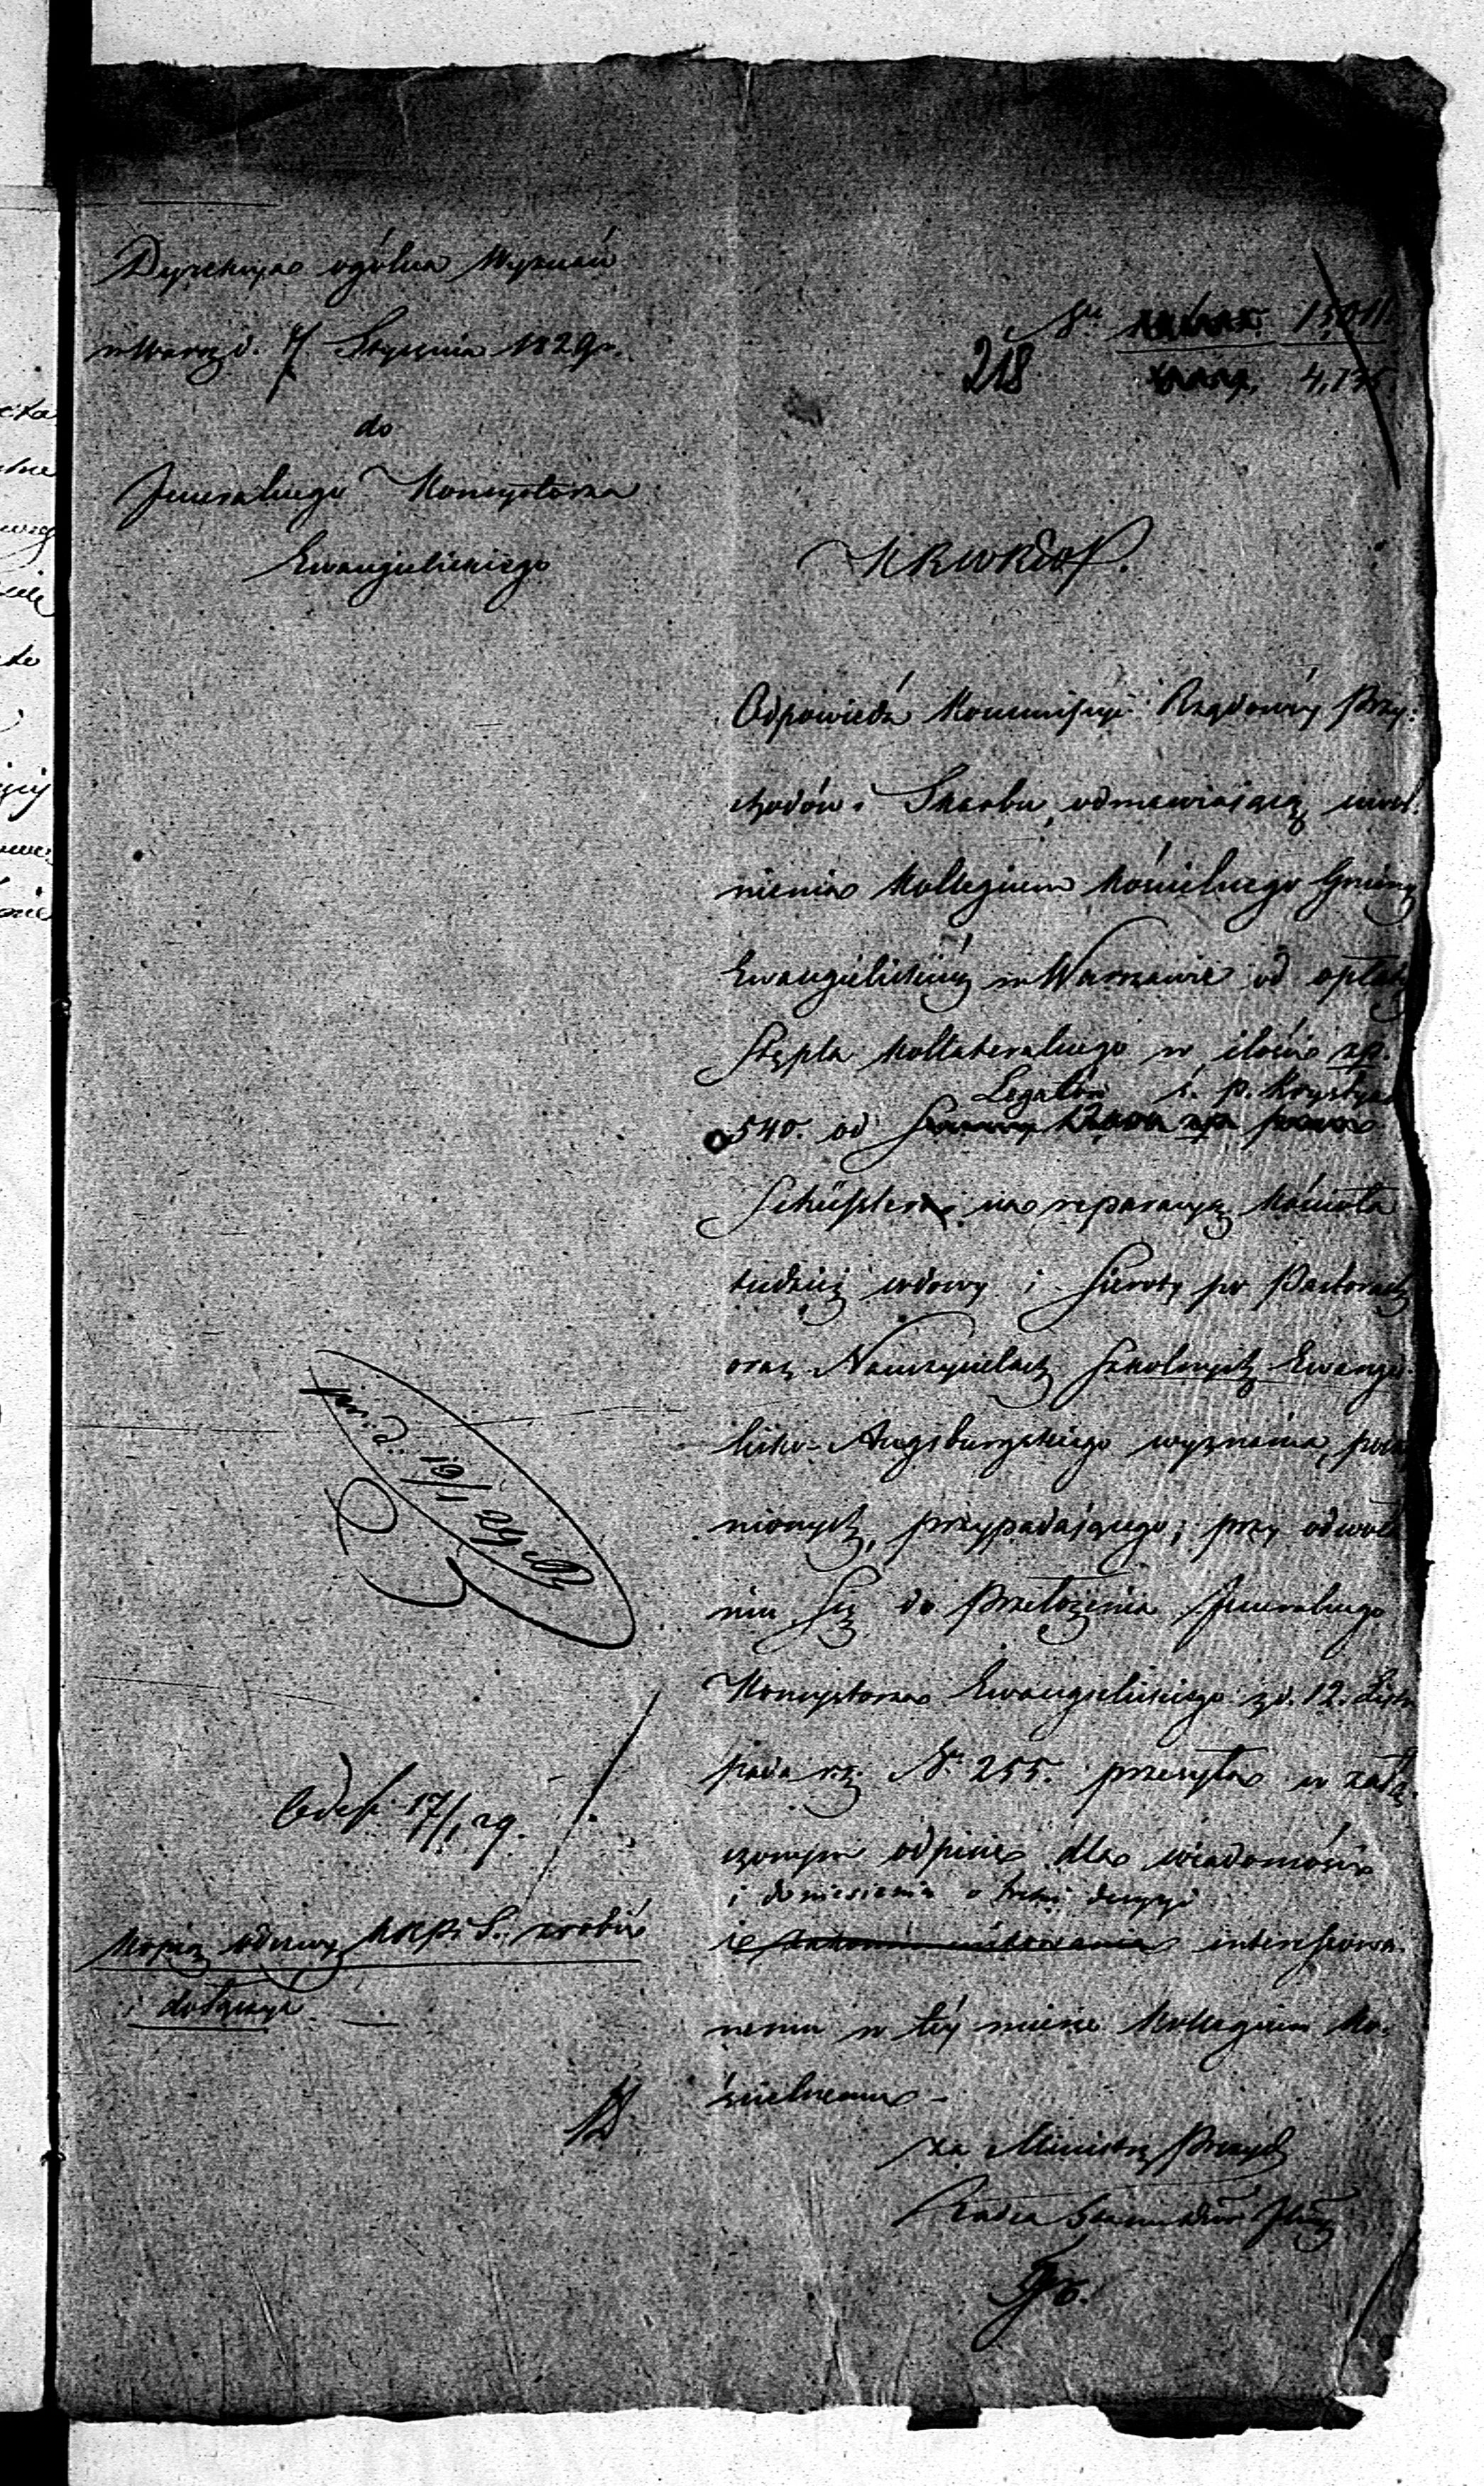 Dyrekcya ogólna Wyznań
w Warsz. d. 7 Stycznia 1829 r.
do
Jeneralnego Konsystorza
Ewangelickiego
218
15,011
4,775
KRWRiOP.
Odpowiedź Kommissyi Rządowéy Przy:
chodów i Skarbu, odmawiaiącą uwol:
nienia Kollegium Kościelnego Gminy
Ewangelickiéy w Warszawie od opłaty
Stępla Kollateralnego w ilości zp.
Legatów ś. p. Krystyna
540. od
na reparacyą Kościoła
tudzież wdowy i Sieroty po Pastorach
oraz Nauczycielach Szkolnych Ewange
licko-Augsburgskiego wyznania, poczy
nionych, przypadaiącego; przy odwoła
niu Się do Przełożenia Jeneralnego
Konsystorza Ewangelickiego z d. 12. Listo
pada r. z. Nr. 255. przesyła w załą
czonym odpisie dla wiadomości
i doniesienia o treści decyzyi
interessowa
nemu w téy mierze Kollegium Ko
ścielnemu -
za Ministra Prezyd
Radca Stanu
17/1 29.
Kopią odezwy KRPiS. zrobić
i dołączyć